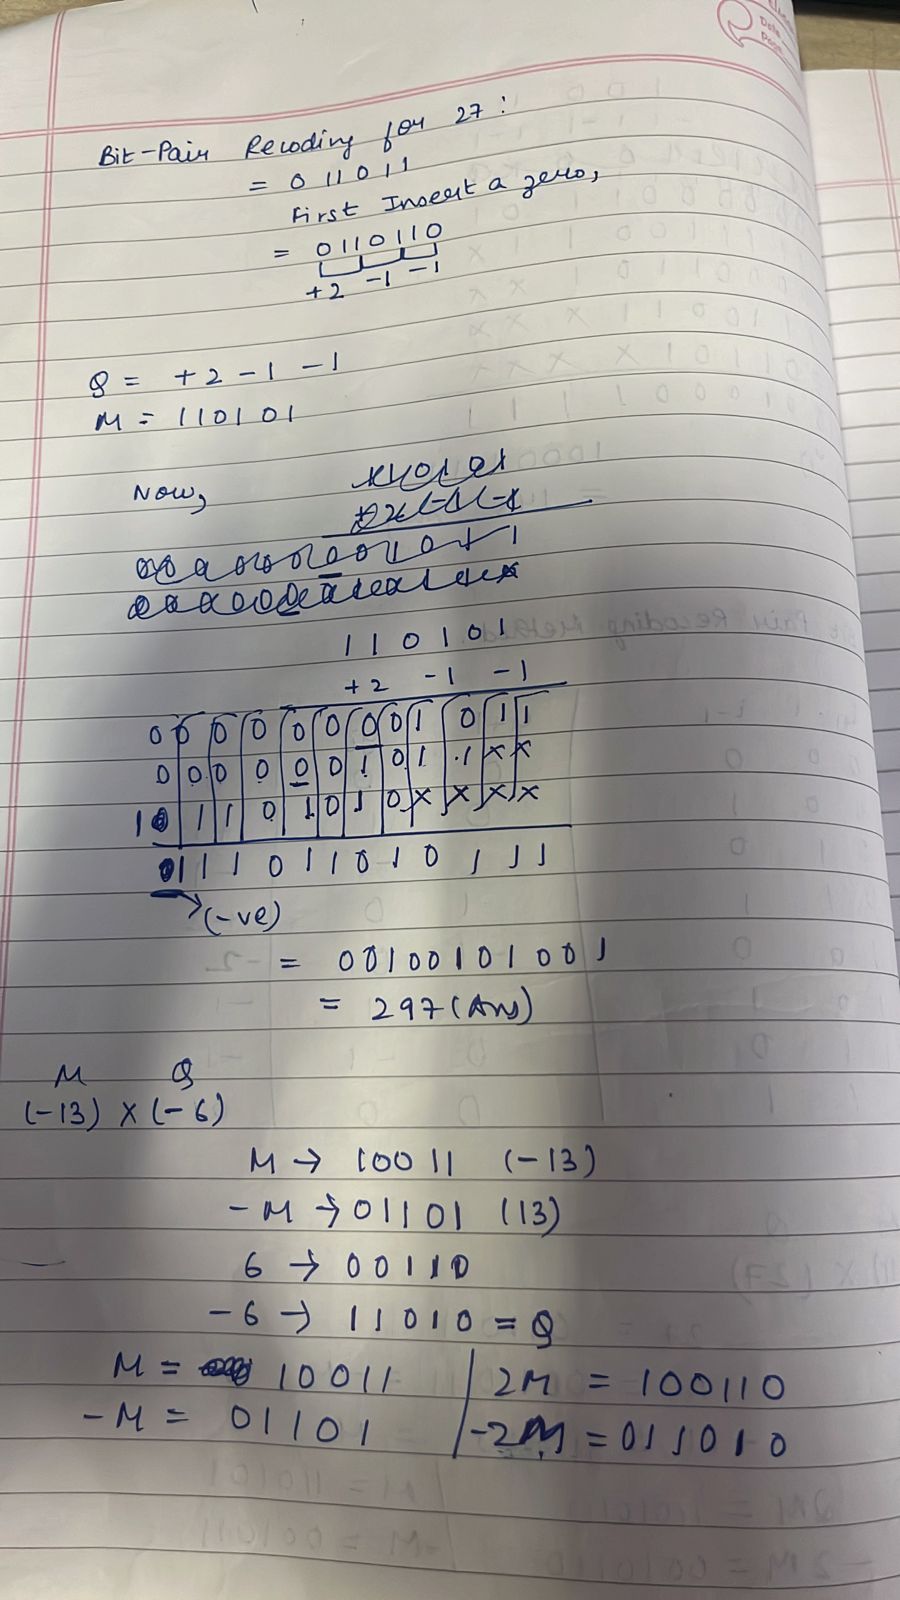 Bit-Pair Recoding for 27:
= 011011
First Insert a zero,
= 0110110
+2 -1 -1
Q = +2 -1 -1
M = 110101
Now,
110101
+2 -1 -1
0 0 0 0 0 0 0 0 1 0 1 1
0 0 0 0 0 0 1 0 1 1 x x
1 1 1 0 1 0 1 0 x x x x
1 1 1 0 1 1 0 1 0 1 1 1
→ (-ve)
= 00100101001
= 297 (Ans)
M Q
(-13) x (-6)
M → 10011 (-13)
-M → 01101 (13)
6 → 00110
-6 → 11010 = Q
M = 10011 | 2M = 100110
-M = 01101 | -2M = 011010